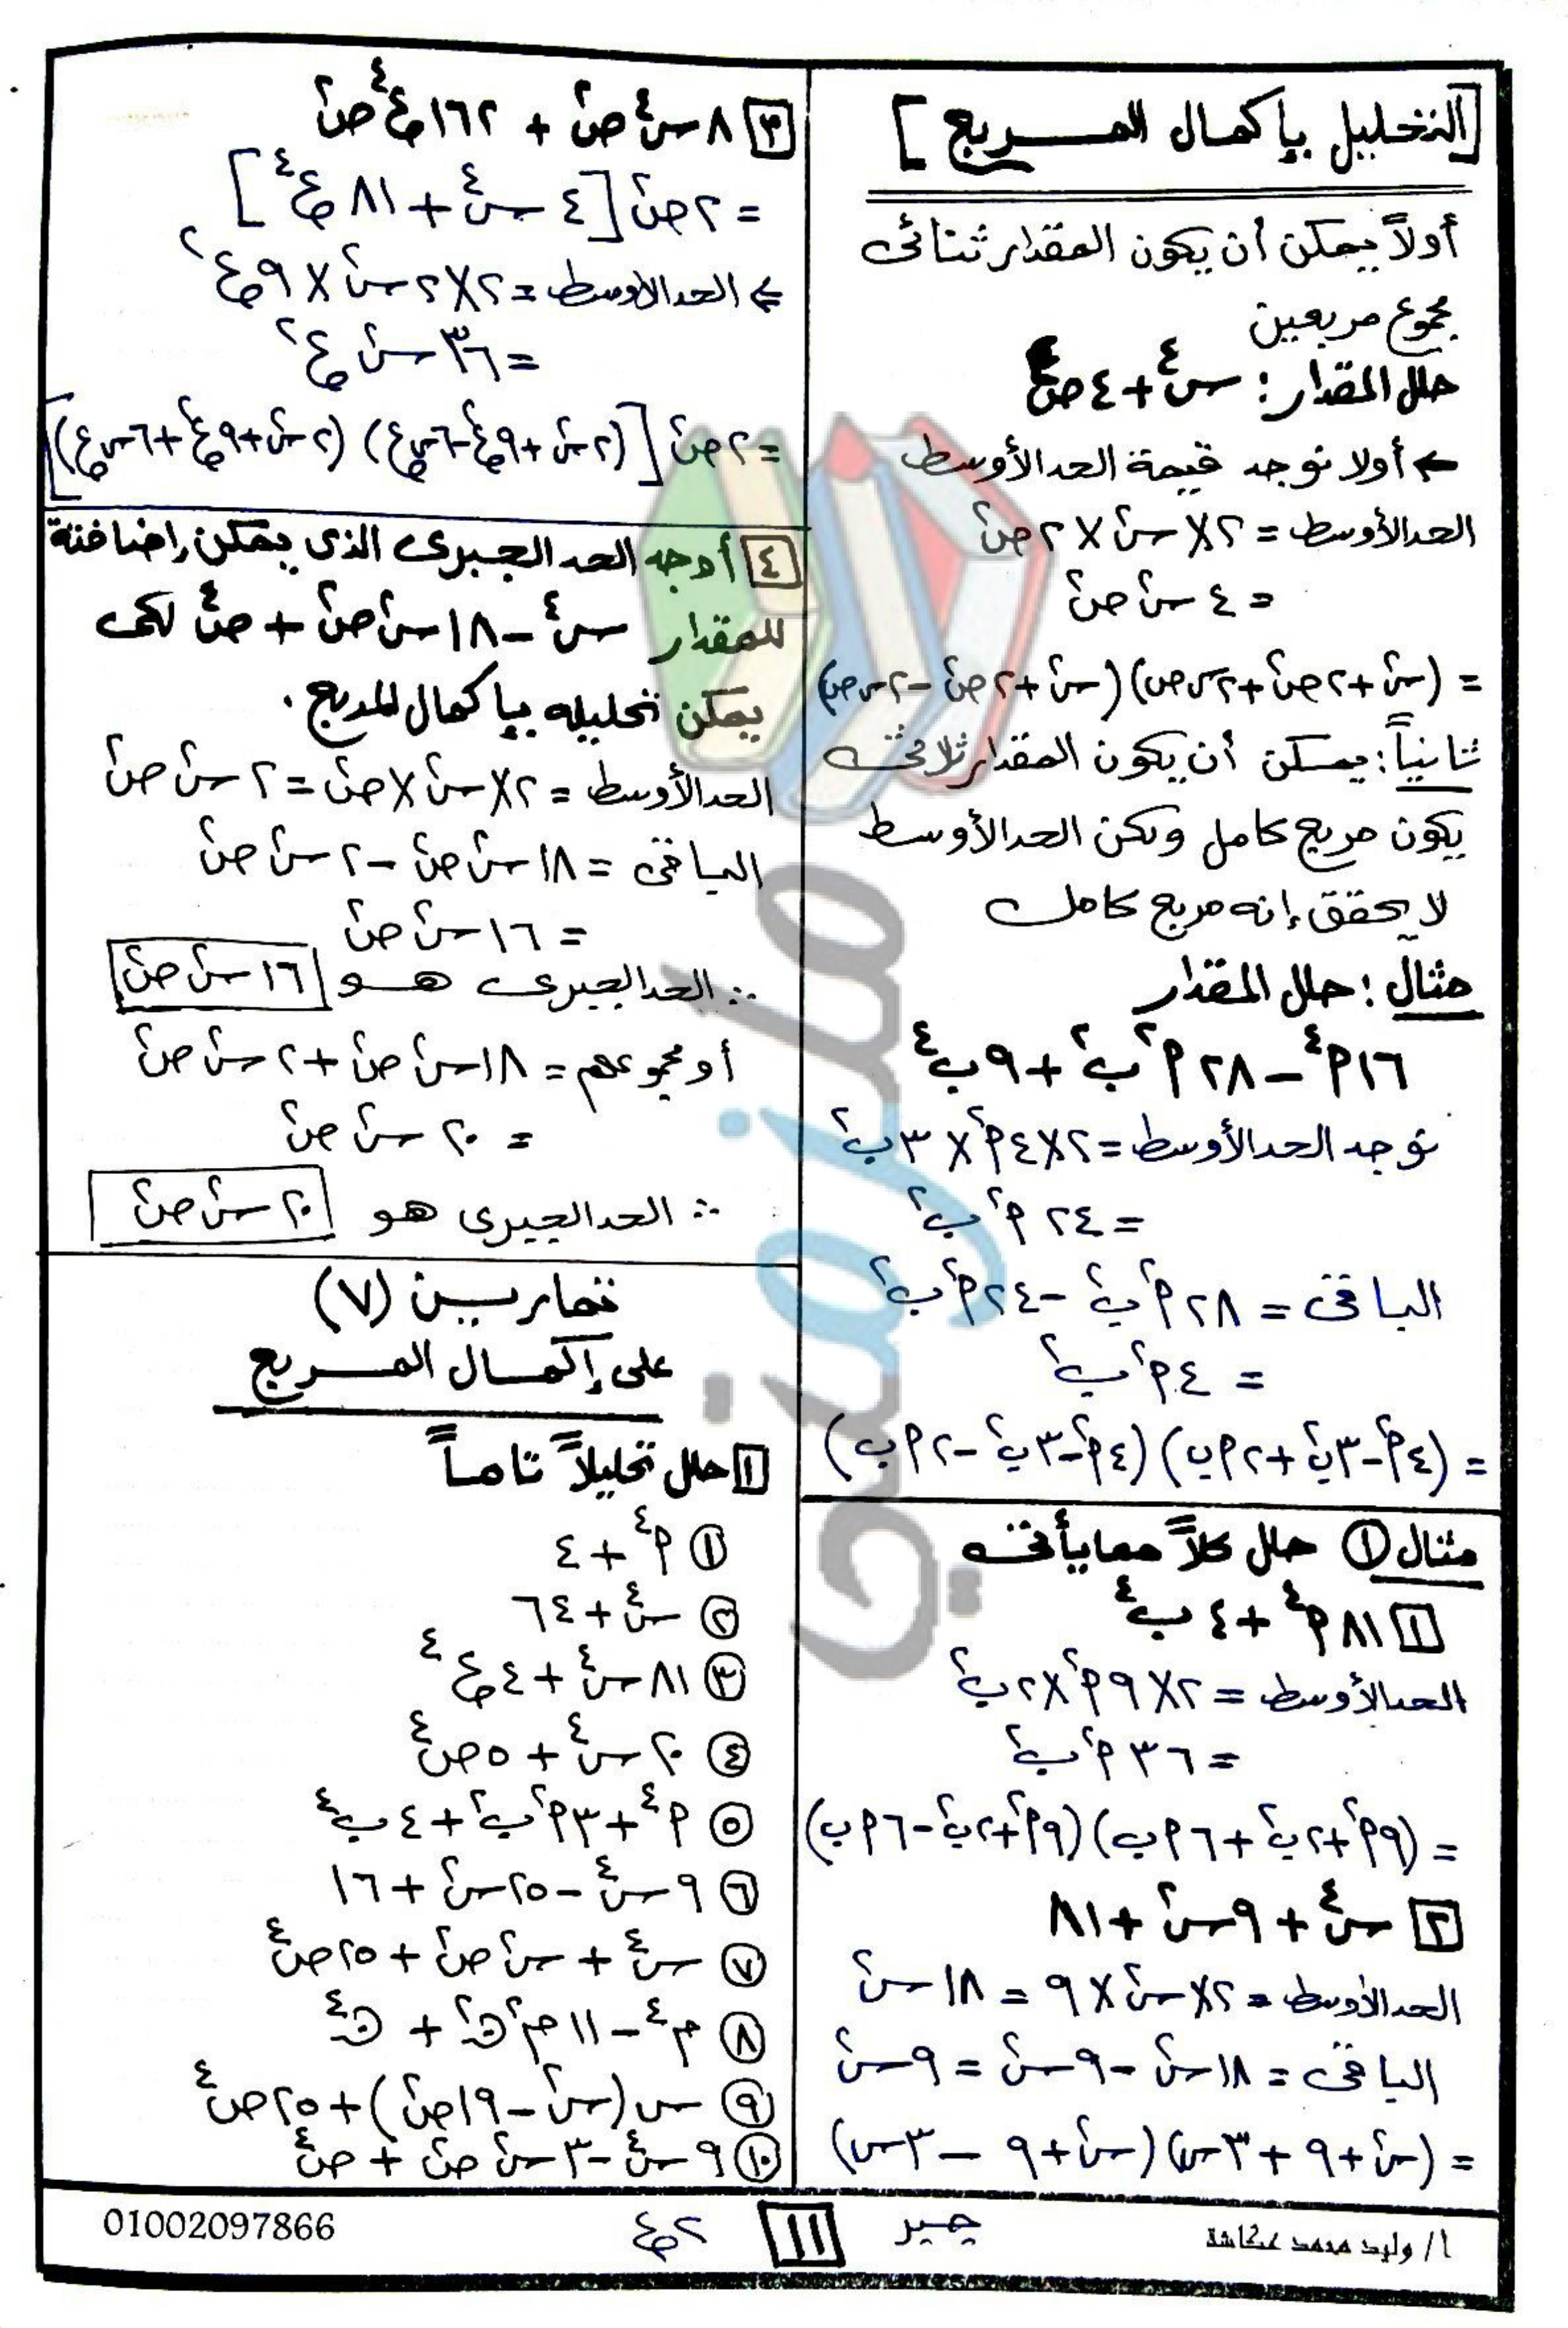 [التحليل بإكمال المربع]
أولاً يمكن أن يكون المقدار ثنائى
مجموع مربعين
حلل المقدار: س⁴ + ٤ص⁴
← أولا نوجد قيمة الحد الأوسط
الحد الأوسط = ٢ × س² × ٢ص²
= ٤ س² ص²
= (س² + ٢ص² + ٢س ص) (س² + ٢ص² - ٢س ص)
ثانياً: يمكن أن يكون المقدار ثلاثى
يكون مربع كامل ولكن الحد الأوسط
لا يحقق إنه مربع كامل
مثال: حلل المقدار
١٦م⁴ - ٢٨م²ب² + ٩ب⁴
نوجد الحد الأوسط = ٢ × ٤م² × ٣ب²
= ٢٤م²ب²
الباقى = ٢٨م²ب² - ٢٤م²ب²
= ٤م²ب²
= (٤م² - ٣ب² + ٢م ب) (٤م² - ٣ب² - ٢م ب)
مثال ① حلل كلاً مما يأتى
[١] ٨١م⁴ + ٤ب⁴
الحد الأوسط = ٢ × ٩م² × ٢ب²
= ٣٦م²ب²
= (٩م² + ٢ب² + ٦م ب) (٩م² + ٢ب² - ٦م ب)
[٢] س⁴ + ٩س² + ٨١
الحد الأوسط = ٢ × س² × ٩ = ١٨س²
الباقى = ١٨س² - ٩س² = ٩س²
= (س² + ٩ + ٣س) (س² + ٩ - ٣س)
[٣] ٨س⁴ص² + ١٦٢ع⁴ص²
= ٢ص² [٤س⁴ + ٨١ع⁴]
⇐ الحد الأوسط = ٢ × ٢س² × ٩ع²
= ٣٦س²ع²
= ٢ص² [(٢س² + ٩ع² - ٦س ع) (٢س² + ٩ع² + ٦س ع)]
[٤] أوجد الحد الجبرى الذى يمكن إضافته
للمقدار س⁴ - ١٨س²ص² + ص⁴ لكى
يمكن تحليله بإكمال المربع.
الحد الأوسط = ٢ × س² × ص² = ٢س²ص²
الباقى = ١٨س²ص² - ٢س²ص²
= ١٦س²ص²
∴ الحد الجبرى هو ١٦س²ص²
أو مجموعهم = ١٨س²ص² + ٢س²ص²
= ٢٠س²ص²
∴ الحد الجبرى هو ٢٠س²ص²
تمارين (٧)
على إكمال المربع
[١] حلل تحليلاً تاماً
① م⁴ + ٤
② س⁴ + ٦٤
③ ٨١س⁴ + ٤ع⁴
④ ٢٠س⁴ + ٥ص⁴
⑤ م⁴ + ٣م²ب² + ٤ب⁴
⑥ ٩س⁴ - ٢٥س² + ١٦
⑦ س⁴ + س²ص² + ٢٥ص⁴
⑧ م⁴ - ١١م²ن² + ن⁴
⑨ س²(س² - ١٩ص²) + ٢٥ص⁴
⑩ ٩س⁴ - ٣س²ص² + ص⁴
أ/ وليد محمد عكاشة
جبر
١١
٢ع
01002097866